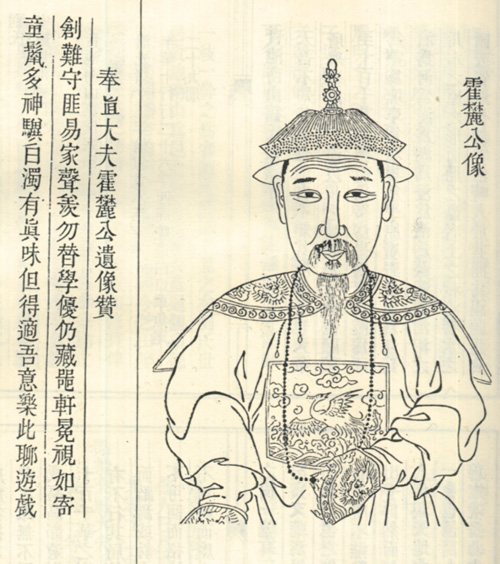 霍麓公像
奉直大夫霍麓公遺像贊
創難守匪易家聲羨勿替學優仍藏器軒冕視如寄
童鬣多神驥白濁有眞味但得適吾意樂此聊遊戲